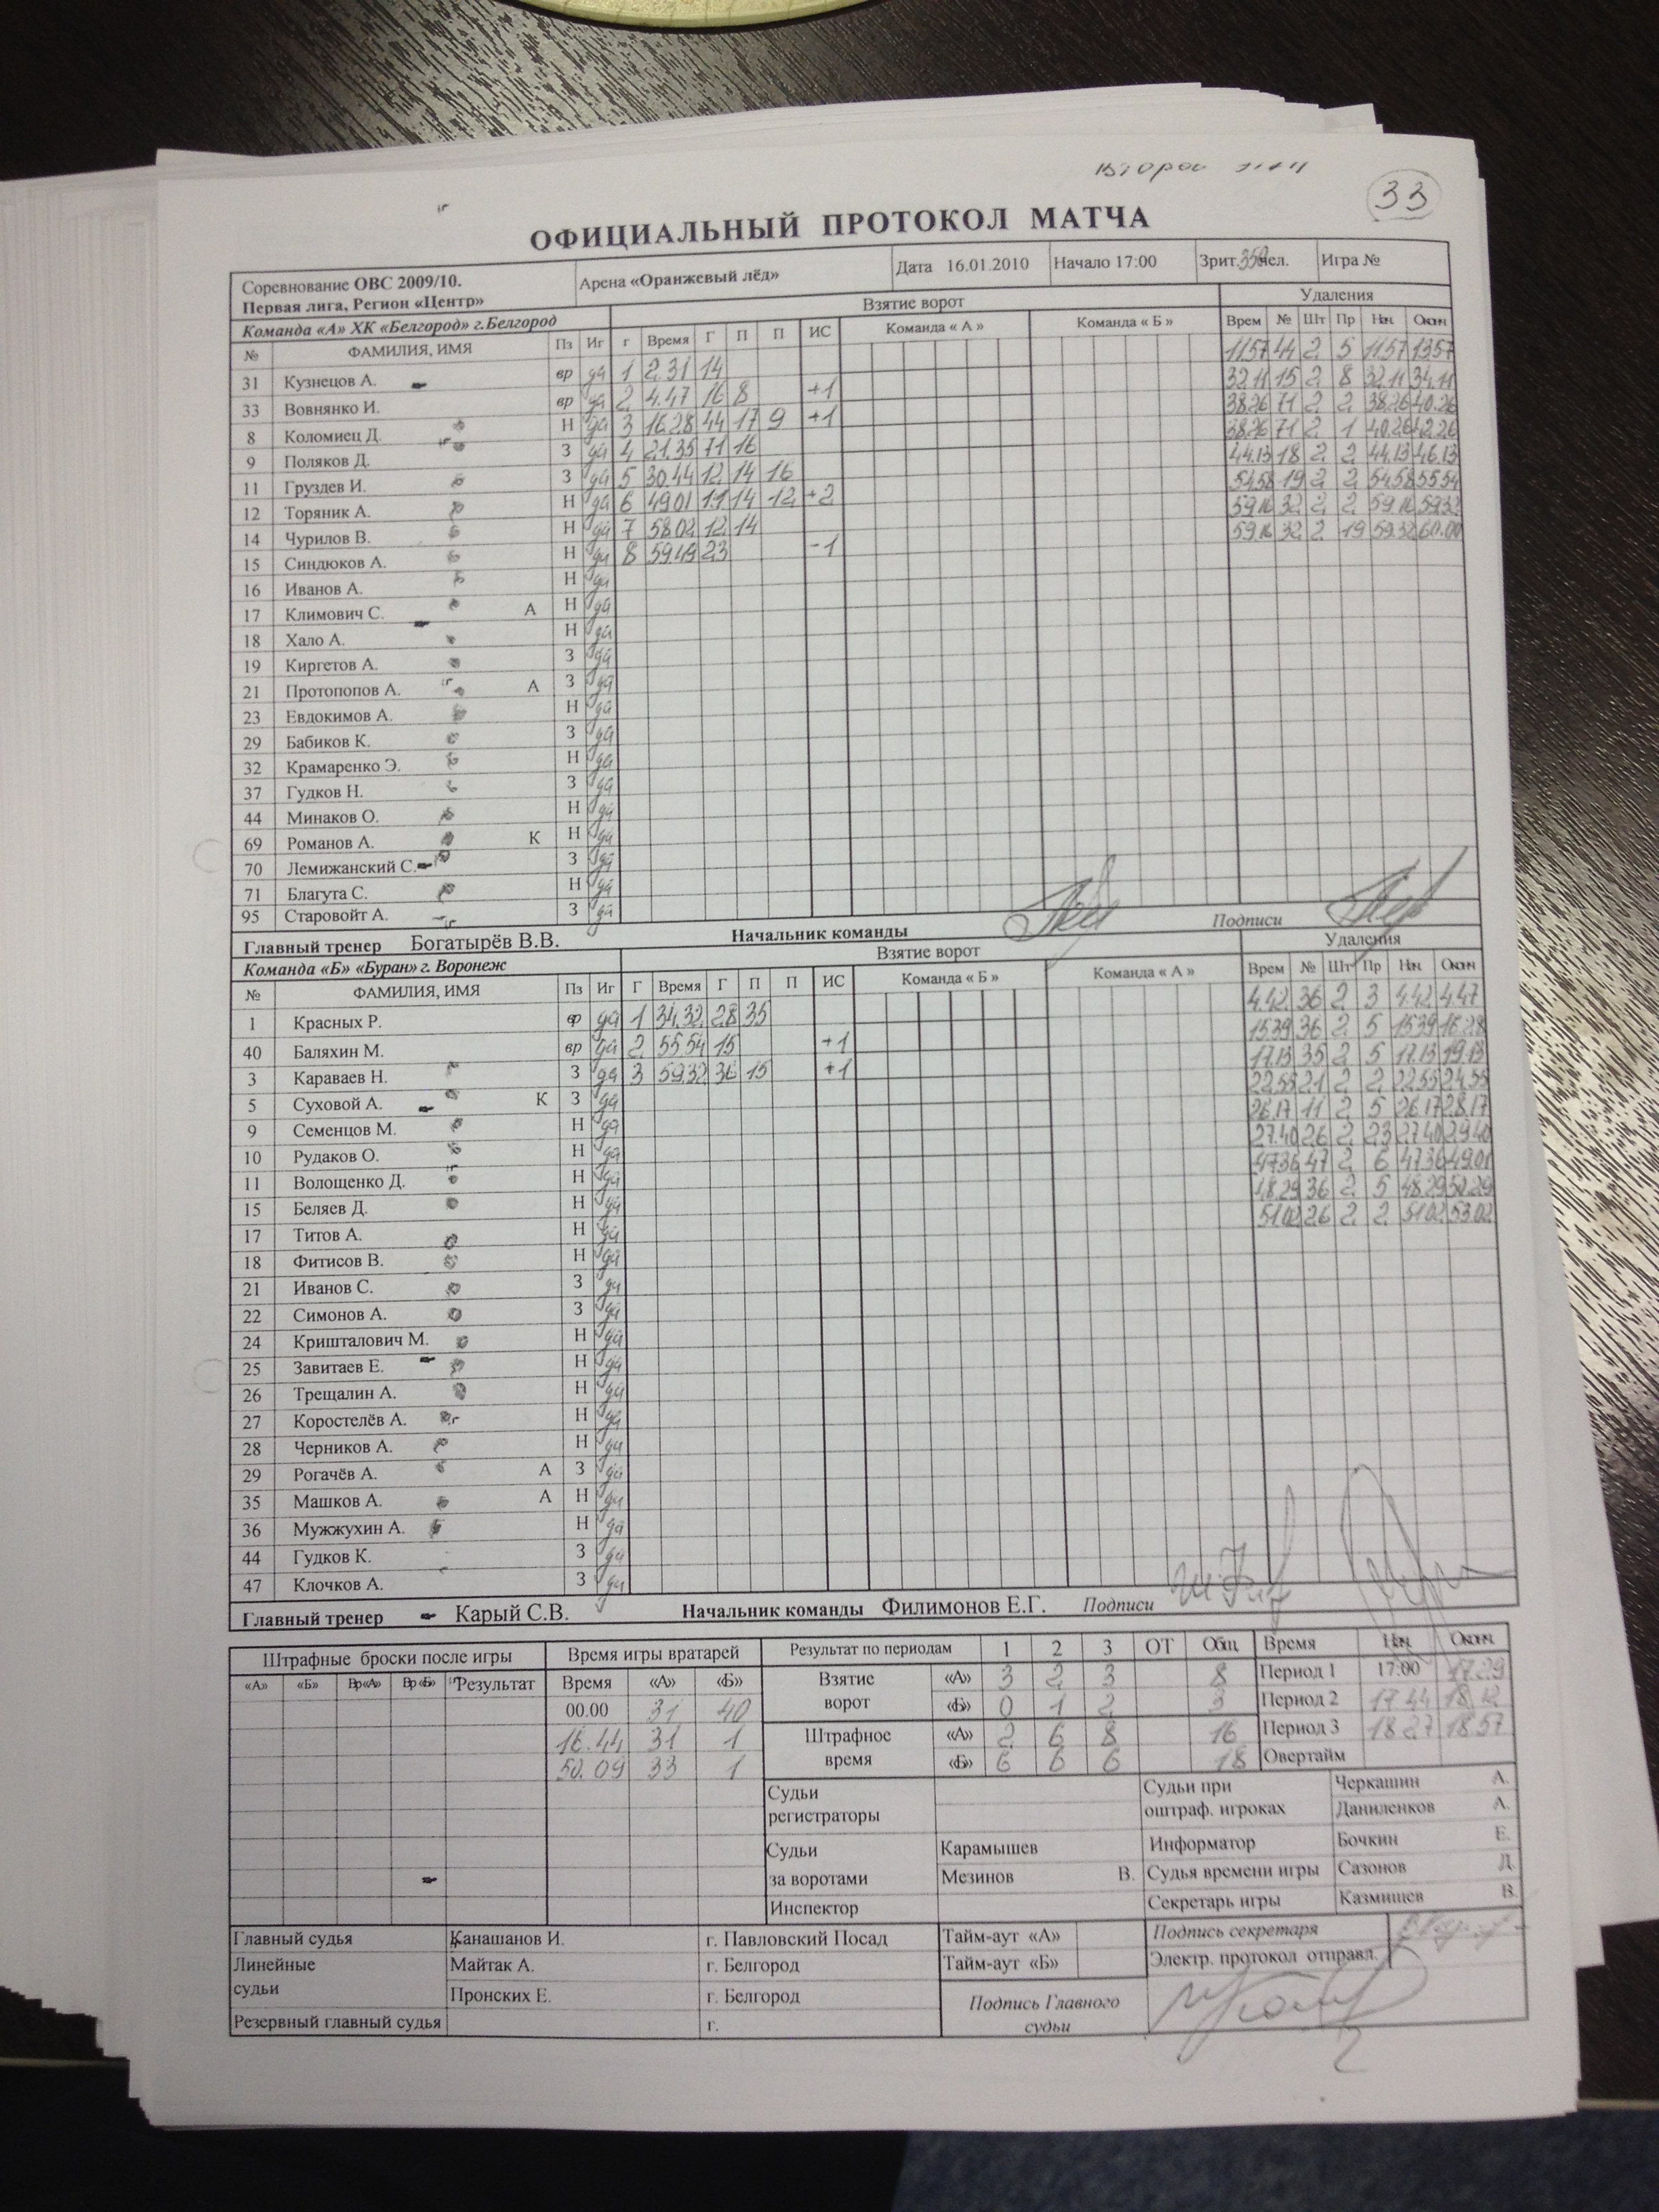 33
ОФИЦИАЛЬНЫЙ ПРОТОКОЛ МАТЧА
Соревнование ОВС 2009/10. Арена «Оранжевый лёд» Дата 16.01.2010 Начало 17:00 Зрит. чел. Игра №
Первая лига, Регион «Центр»
Взятие ворот Удаления
Команда «А» ХК «Белгород» г.Белгород Команда « А » Команда « Б »
№ ФАМИЛИЯ, ИМЯ Пз Иг г Время Г П П ИС Врем № Шт Пр Нач Оконч
11.57 44 2 5 11.57 13.57
31 Кузнецов А. вр да 1 2.31 14 32.11 15 2 8 32.11 34.11
33 Вовнянко И. вр да 2 4.47 16 8 +1 38.26 71 2 2 38.26 40.26
8 Коломиец Д. Н да 3 16.28 44 17 9 +1 38.26 71 2 1 40.26 42.26
9 Поляков Д. З да 4 21.35 71 16 44.13 18 2 2 44.13 46.13
11 Груздев И. З да 5 30.44 12 14 16 54.58 19 2 2 54.58 55.54
12 Торяник А. Н да 6 49.01 11 14 12 +2 59.16 32 2 2 59.16 59.32
14 Чурилов В. Н да 7 58.02 12 14 59.16 32 2 19 59.32 60.00
15 Синдюков А. Н да 8 59.49 23 -1
16 Иванов А. Н да
17 Климович С. А Н да
18 Хало А. Н да
19 Киргетов А. З да
21 Протопопов А. А З да
23 Евдокимов А. Н да
29 Бабиков К. З да
32 Крамаренко Э. Н да
37 Гудков Н. З да
44 Минаков О. Н да
69 Романов А. К Н да
70 Лемижанский С. З да
71 Благута С. Н да
95 Старовойт А. З да
Главный тренер Богатырёв В.В. Начальник команды Подписи
Взятие ворот Удаления
Команда «Б» «Буран» г. Воронеж Команда « Б » Команда « А »
№ ФАМИЛИЯ, ИМЯ Пз Иг Г Время Г П П ИС Врем № Шт Пр Нач Оконч
4.42 36 2 3 4.42 4.47
1 Красных Р. вр да 1 34.32 28 35 15.39 36 2 5 15.39 16.28
40 Баляхин М. вр да 2 55.54 15 +1 17.13 35 2 5 17.13 19.13
3 Караваев Н. З да 3 59.32 36 15 +1 22.55 21 2 2 22.55 24.55
5 Суховой А. К З да 26.17 11 2 5 26.17 28.17
9 Семенцов М. Н да 27.40 26 2 23 27.40 29.40
10 Рудаков О. Н да 47.36 47 2 6 47.36 49.01
11 Волощенко Д. Н да 48.29 36 2 5 48.29 50.29
15 Беляев Д. Н да 51.02 26 2 2 51.02 53.02
17 Титов А. Н да
18 Фитисов В. Н да
21 Иванов С. З да
22 Симонов А. З да
24 Кришталович М. Н да
25 Завитаев Е. Н да
26 Трещалин А. Н да
27 Коростелёв А. Н да
28 Черников А. Н да
29 Рогачёв А. А З да
35 Машков А. А Н да
36 Мужжухин А. Н да
44 Гудков К. З да
47 Клочков А. З да
Главный тренер Карый С.В. Начальник команды Филимонов Е.Г. Подписи
Штрафные броски после игры Время игры вратарей Результат по периодам 1 2 3 ОТ Общ Время Нач Оконч
«А» «Б» Вр«А» Вр«Б» Результат Время «А» «Б» Взятие ворот «А» 3 2 3 8 Период 1 17:00 17.29
00.00 31 40 «Б» 0 1 2 3 Период 2 17 44 18.12
16.44 31 1 Штрафное время «А» 2 6 8 16 Период 3 18 27 18 57
50.09 33 1 «Б» 6 6 6 18 Овертайм
Судьи регистраторы Судьи при оштраф. игроках Черкашин А.
Даниленков А.
Судьи за воротами Карамышев Информатор Бочкин Е.
Мезинов В. Судья времени игры Сазонов Д.
Инспектор Секретарь игры Казмишев В.
Главный судья Канашанов И. г. Павловский Посад Тайм-аут «А» Подпись секретаря
Линейные судьи Майтак А. г. Белгород Тайм-аут «Б» Электр. протокол отправл.
Пронских Е. г. Белгород Подпись Главного судьи
Резервный главный судья г.